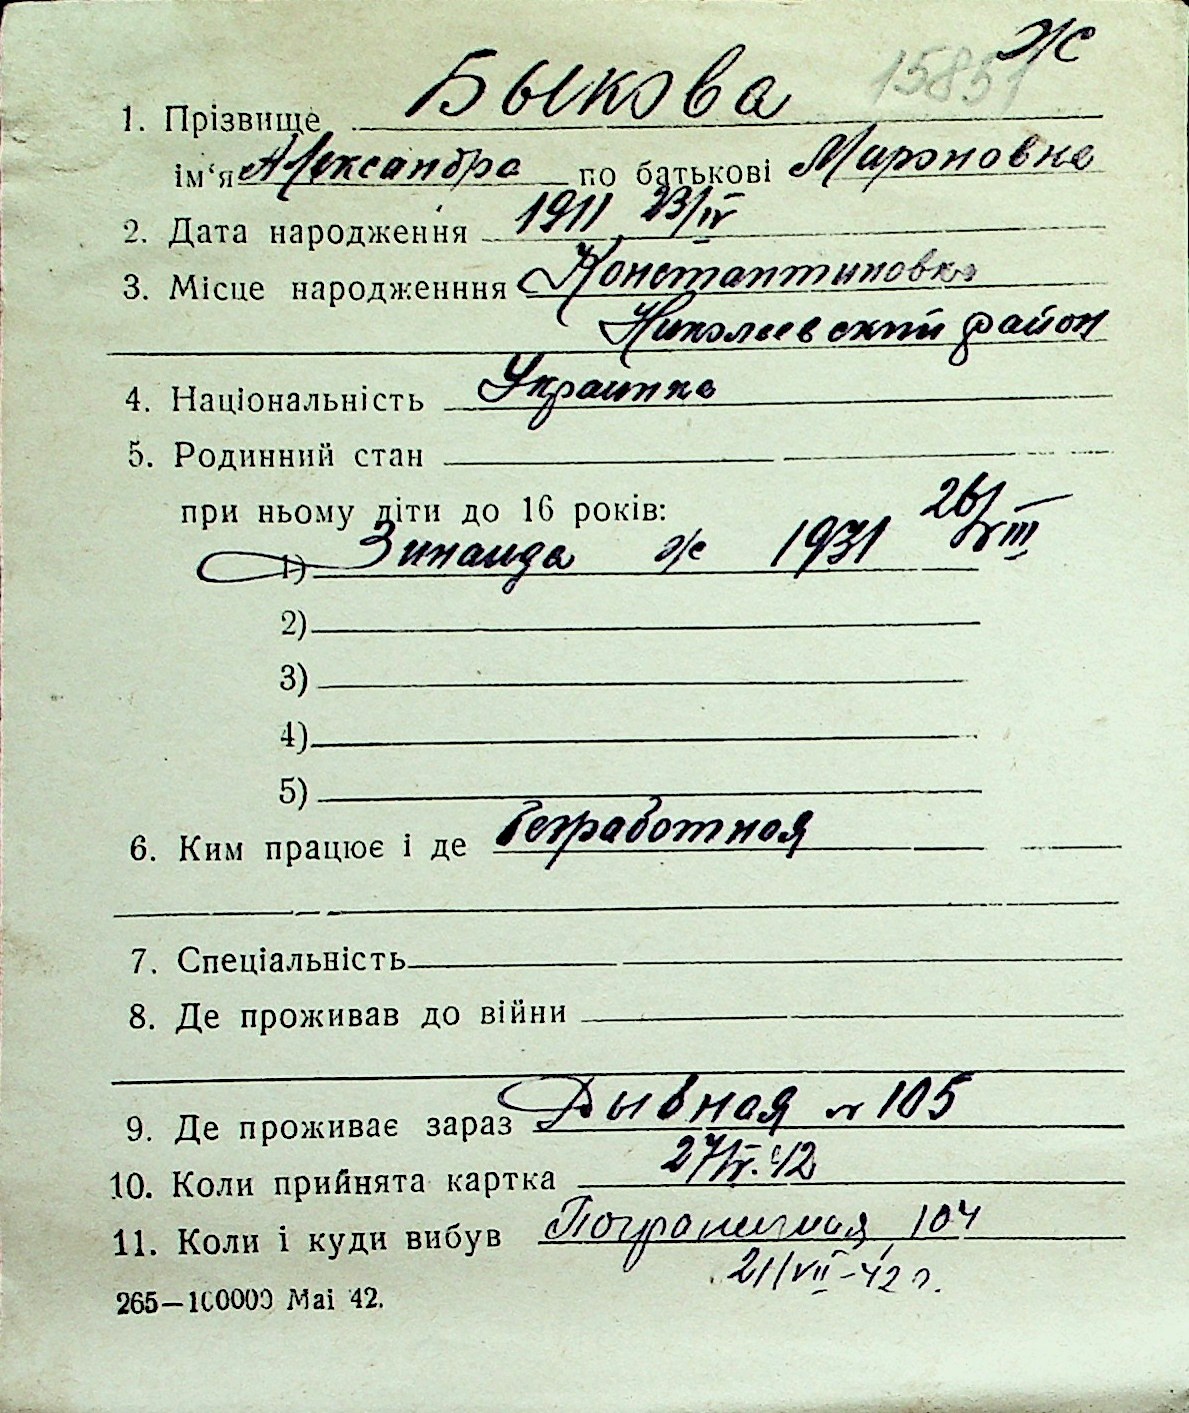 Ж
15851
1. Прізвище Быкова
ім'я Александра по батькові Мироновна
2. Дата народження 1911 23/IV
3. Місце народженння Константиновка
Николаевский район
4. Національність Украинка
5. Родинний стан
при ньому діти до 16 років:
1) Зинаида ж 1931 26/VIII
2)
3)
4)
5)
6. Ким працює і де безработная
7. Спеціальність
8. Де проживав до війни
9. Де проживає зараз № 105
10. Коли прийнята картка 42
11. Коли і куди вибув Пограничная, 104
21/VII-42 г.
265—100000 Mai 42.